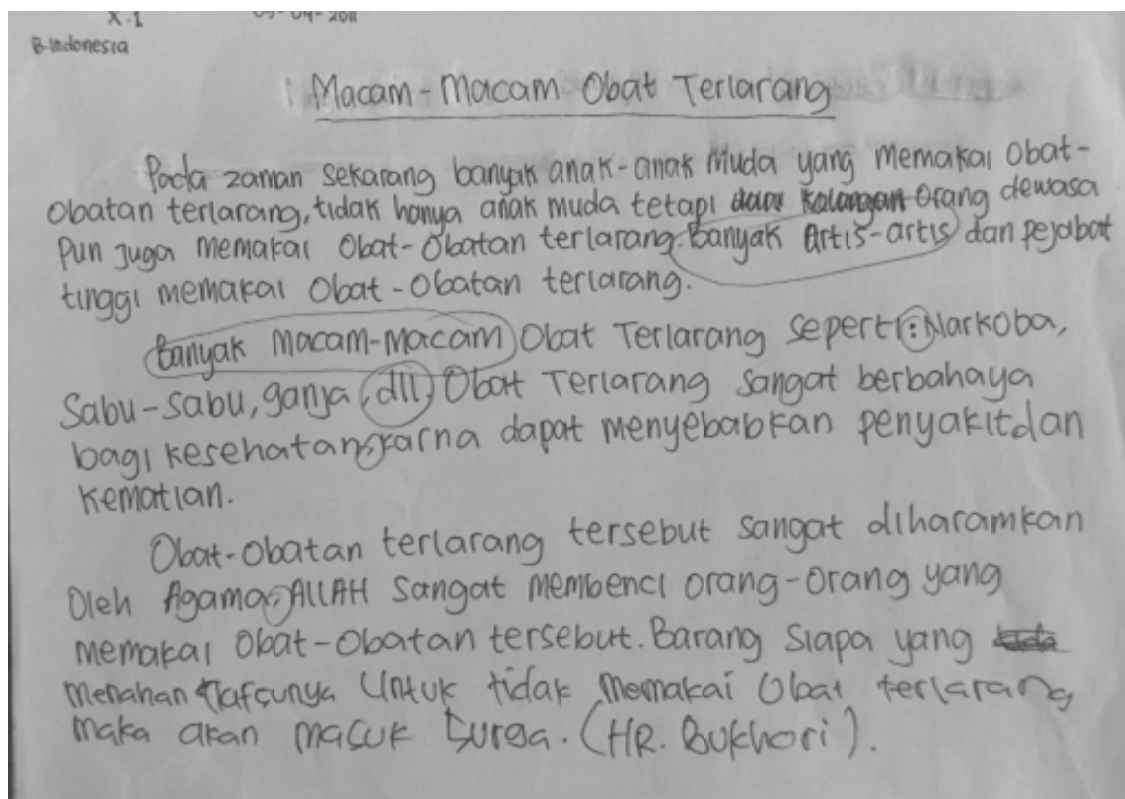 X.1
B.Indonesia
Macam-Macam Obat Terlarang
Pada zaman sekarang banyak anak-anak Muda yang Memakai Obat-
Obatan terlarang, tidak hanya anak muda tetapi Orang dewasa
Pun Juga Memakai Obat-Obatan terlarang. Banyak Artis-artis dan pejabat
tinggi memakai Obat-Obatan terlarang.
Banyak Macam-Macam Obat Terlarang Seperti: Narkoba,
Sabu-Sabu, ganja, dll, Obat Terlarang Sangat berbahaya
bagi kesehatan, karna dapat menyebabkan penyakit dan
Kematian.
Obat-Obatan terlarang tersebut sangat diharamkan
Oleh Agama, ALLAH Sangat Membenci orang-orang yang
memakai Obat-Obatan tersebut. Barang Siapa yang
Menahan Nafsunya Untuk tidak Memakai Obat terlarang
Maka akan Masuk Surga. (HR. Bukhori).